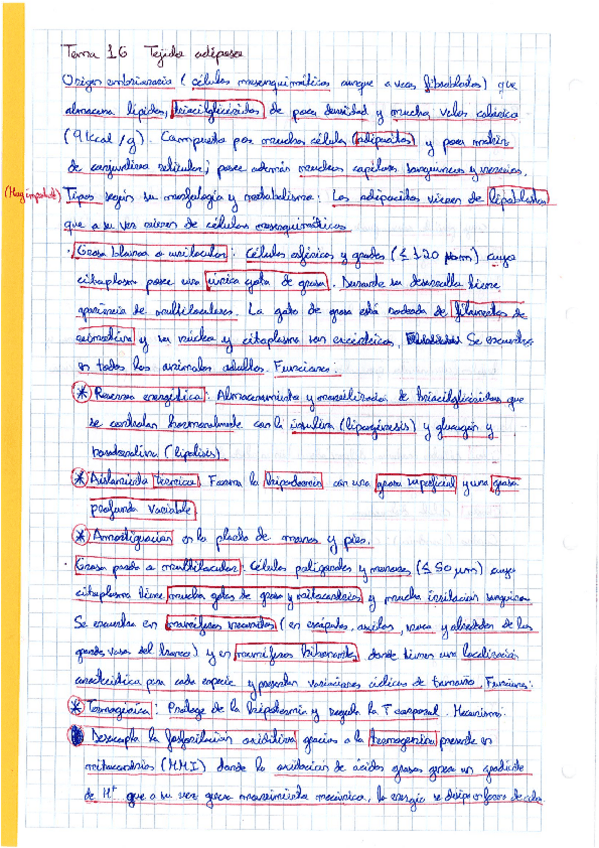 Tema 16 Tejido adiposo
Origen embrionario (células mesenquimáticas aunque a veces fibroblastos) que
almacena lípidos, triacilglicéridos de poca densidad y mucho valor calórico
(9 kcal/g). Compuesto por muchas células (adipocitos) y poca matriz
de conjuntivo reticular; posee además muchos capilares sanguíneos y nervios.
(Muy importante) Tipos según su morfología y metabolismo: Los adipocitos vienen de lipoblastos
que a su vez vienen de células mesenquimáticas
· Grasa blanca o unilocular: Células esféricas y grandes (≤ 120 μm) cuyo
citoplasma posee una única gota de grasa. Durante su desarrollo tiene
apariencia de multilocular. La gota de grasa está rodeada de filamentos de
y su núcleo y citoplasma son excéntricos. Se encuentra
en todos los animales adultos. Funciones:
* Reserva energética: Almacenamiento y movilización de triacilglicéridos que
se controlan hormonalmente con la insulina (lipogénesis) y glucagón y
noradrenalina (lipólisis).
* Aislamiento térmico. Forma la hipodermis con una grasa superficial y una grasa
profunda variable
* Amortiguación en la planta de manos y pies.
· Grasa parda o multilocular: Células poligonales y menores (≤ 50 μm) cuyo
citoplasma tiene muchas gotas de grasa y mitocondrias y mucha irrigación sanguínea
Se encuentra en mamíferos neonatos (en escápulas, axilas, nuca y alrededor de los
grandes vasos del tronco) y en mamíferos hibernantes, donde tienen una localización
característica para cada especie y presentan variaciones cíclicas de tamaño. Funciones:
* Termogénica: Protege de la hipotermia y regula la T corporal. Mecanismo:
Desacopla la fosforilación oxidativa gracias a la termogenina presente en
mitocondrias (MMI) donde la oxidación de ácidos grasos genera un gradiente
de H⁺ que a su vez genera movimiento mecánico, la energía se disipa en forma de calor